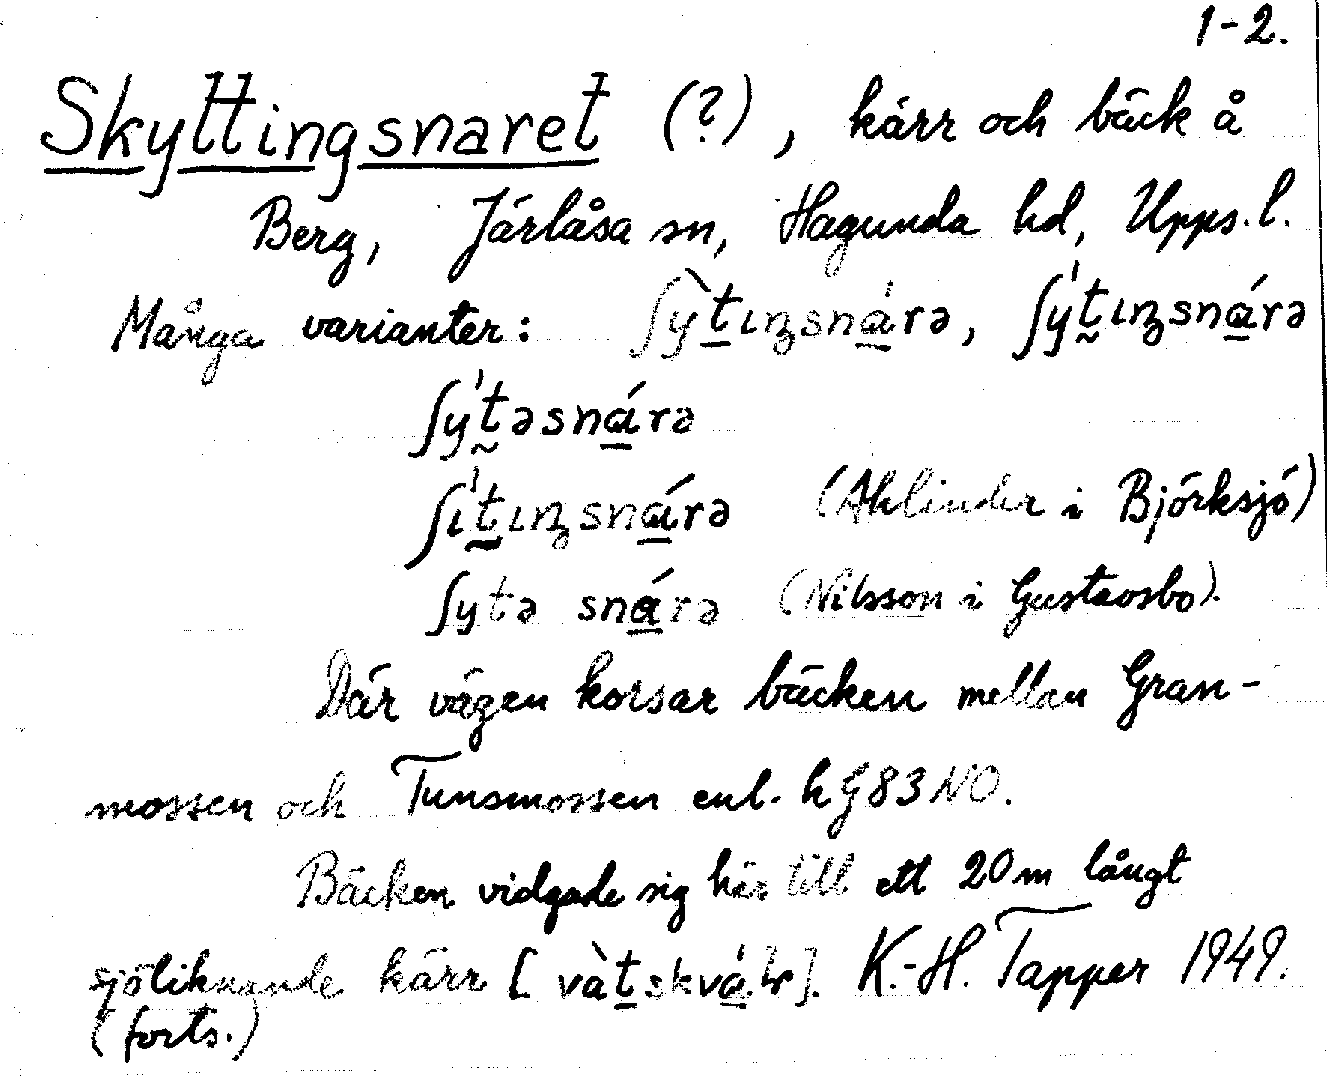 1-2.
Skyttingsnaret (?), kärr och bäck å
Berg, Järlåsa sn, Hagunda hd, Upps. l.
Många varianter: ʃỳt̲ıŋsná̲rə, ʃýt̰ıŋsná̲rə
ʃýt̰əsná̲rə
ʃít̲ıŋsná̲rə (Ahlinder i Björksjö)
ʃytə sná̲rə (Nilsson i Gustavsbo).
Där vägen korsar bäcken mellan Gran-
mossen och Tunsmossen enl. hG83NO.
Bäcken vidgade sig här till ett 20 m långt
sjöliknande kärr [vàt̲skvá̲.ɭr]. K.-H. Tapper 1949.
(forts.)